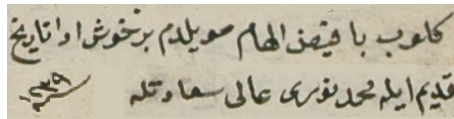 كلوب با فيض الهام سويلدم بر خوش ادا تاريخ
قديم ايله محمد نورى عالى سعادتله ١٢٣٩